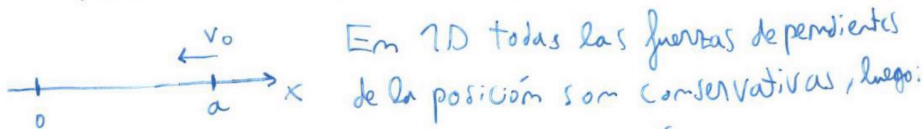 v₀
En 1D todas las fuerzas dependientes
0 a x
de la posición son conservativas, luego: